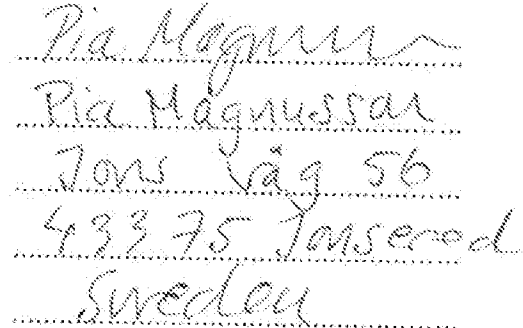 Pia Magnusson
Pia Magnusson
Jons väg 56
43375 Jonsered
Sweden